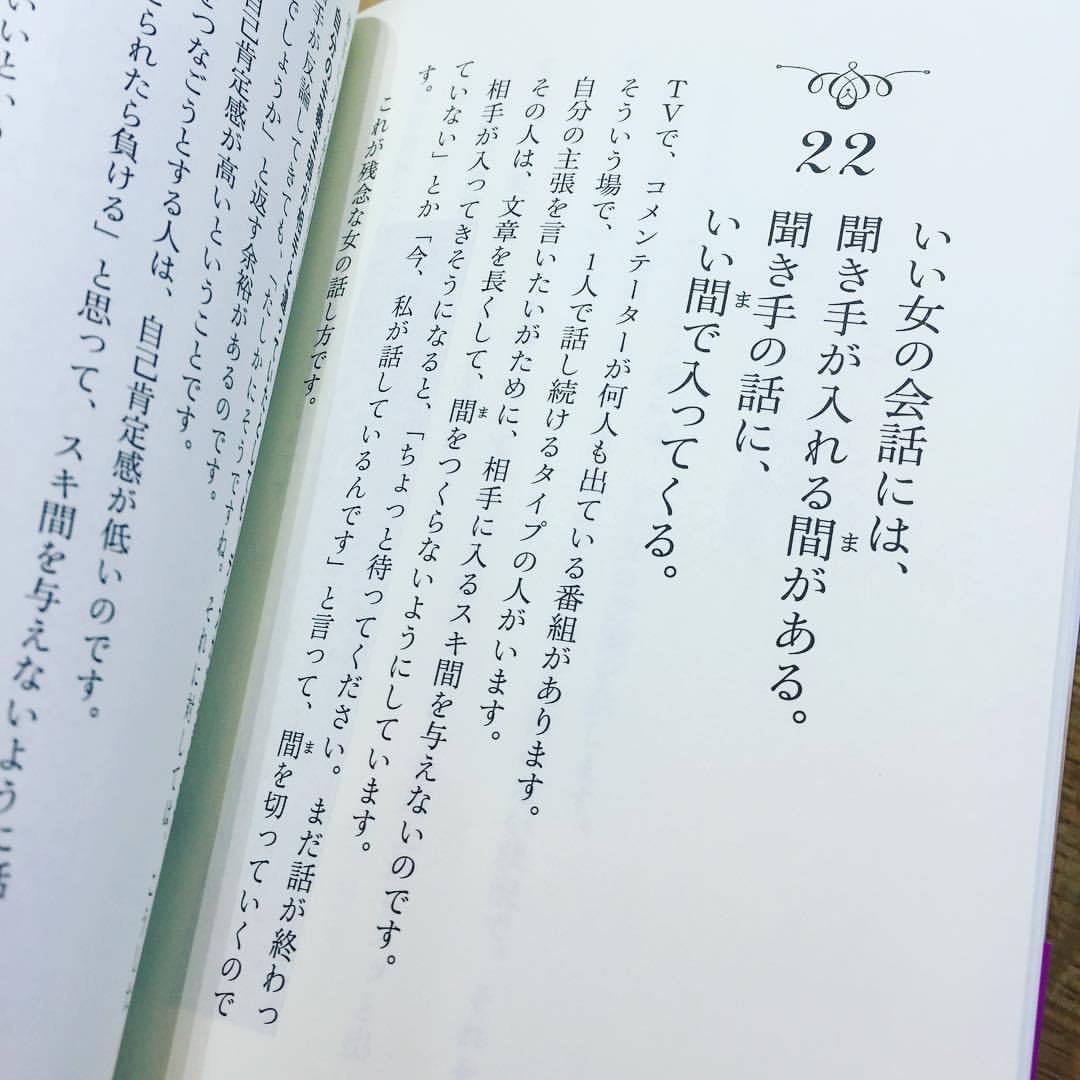 22
いい女の会話には、
聞き手が入れる間がある。
聞き手の話に、
いい間で入ってくる。
TVで、コメンテーターが何人も出ている番組があります。
そういう場で、1人で話し続けるタイプの人がいます。
自分の主張を言いたいがために、相手に入るスキ間を与えないのです。
その人は、文章を長くして、間をつくらないようにしています。
相手が入ってきそうになると、「ちょっと待ってください。まだ話が終わっ
ていない」とか「今、私が話しているんです」と言って、間を切っていくので
す。
これが残念な女の話し方です。
手が反論してきても、「たしかにそうですね。それに対して
でしょうか」と返す余裕があるのです。
自己肯定感が高いということです。
つなごうとする人は、自己肯定感が低いのです。
られたら負ける」と思って、スキ間を与えないように話
いいと、